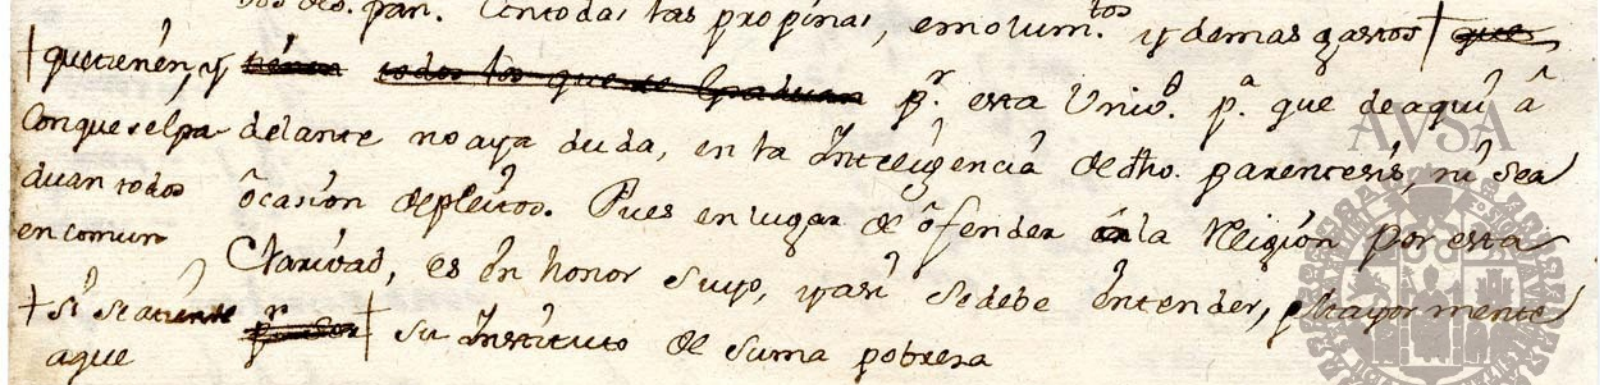 dos dro. pan. Con todas las propinas, emolum.tos y demas gastos † que
† que tienen, y tienen todos los que se Graduan p.r esta Univ.d p.a que de aqui â
Con que se lpa- delante no aya duda, en la Inteligencia de dho. parentesis, ni sea
duan todos ôcasion de pleitos. Pues en lugar de ôfender en la Religion por esta
en comun Claridad, es en honor suyo, y asi se debe entender, y mayormente
† si se atiende p.r ser † su Instituto de suma pobresa
aque
AVSA